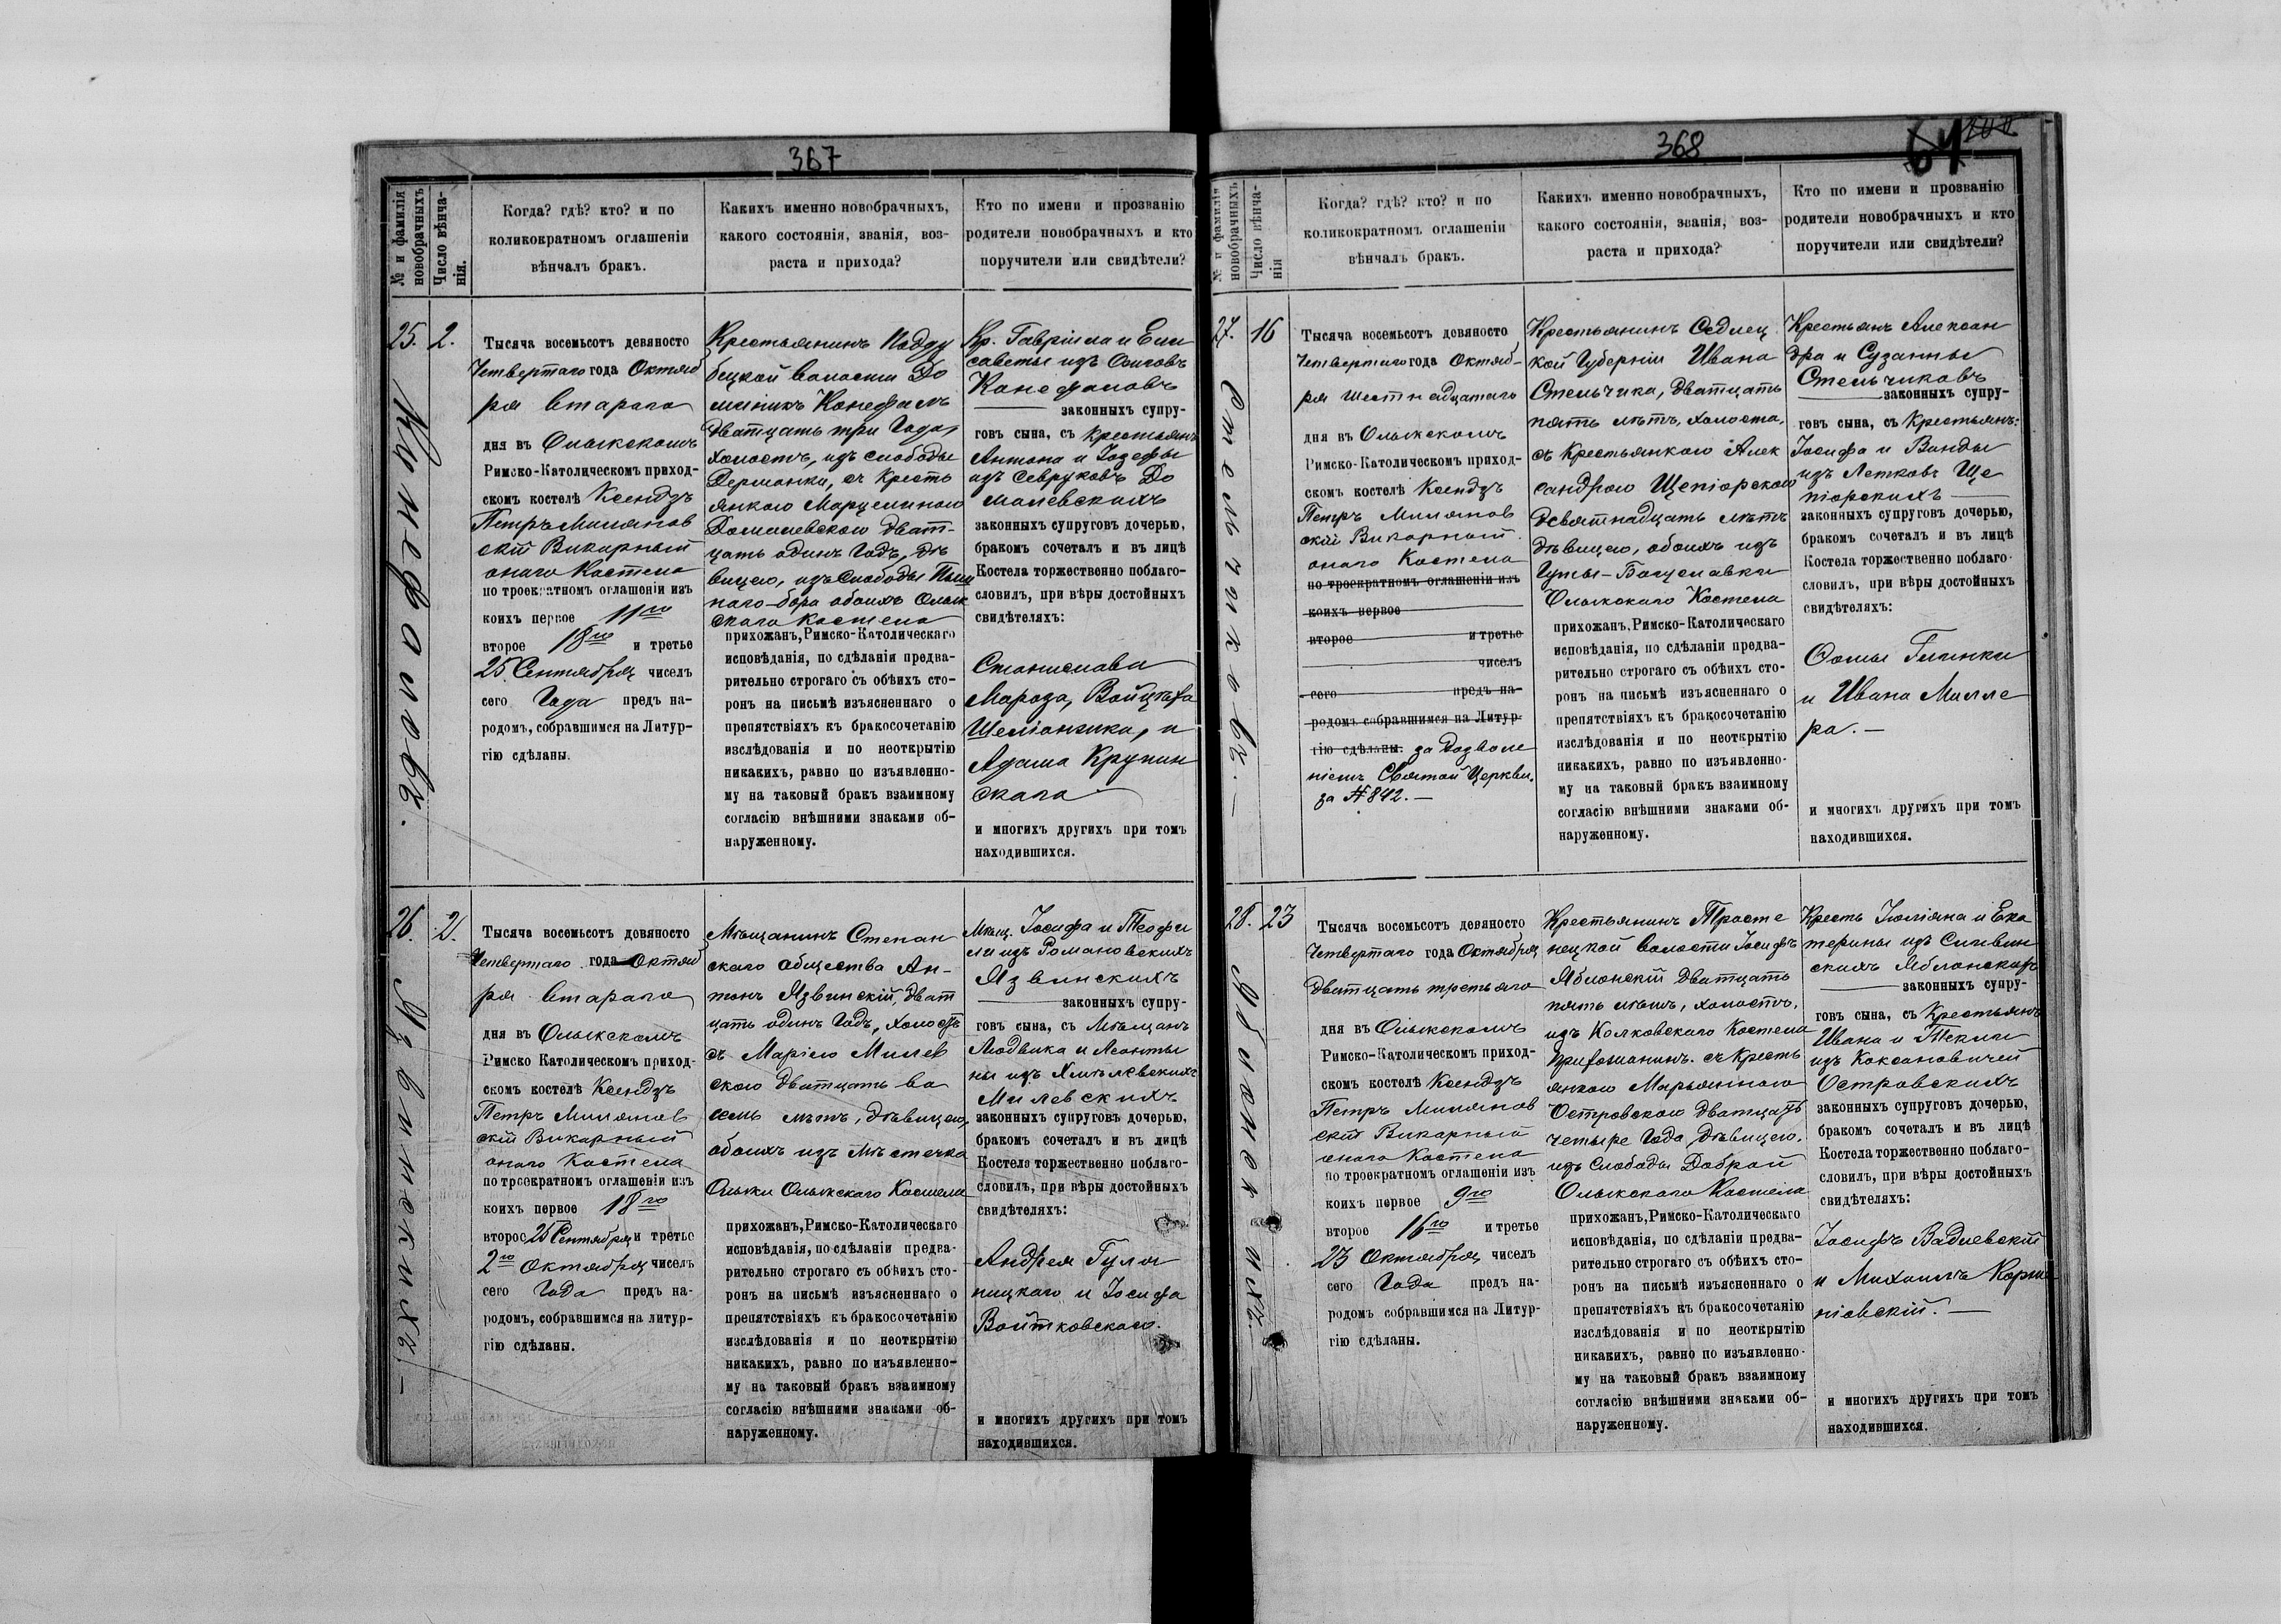 367
№ и фамилія
новобрачныхъ
Число вѣнча-
нія.
Когда? гдѣ? кто? и по
коликократномъ оглашеніи
вѣнчалъ бракъ.
Каких именно новобрачныхъ,
какого состоянія, званія, воз-
раста и прихода?
Кто по имени и прозванію
родители новобрачныхъ и кто
поручители или свидѣтели?
25.
Конефаловъ.
2.
Тысяча восемьсотъ девяносто
Четвертаго года Октяб
ря Втараго
дня въ Олыкскомъ
Римско-Католическомъ приход-
скомъ костелѣ Ксендзъ
Петръ Милянов
скій Викарный
онаго Костела
по троекратномъ оглашеніи изъ
коихъ первое 11го
второе 18го и третье
25 Сентября чиселъ
сего Года предъ на-
родомъ, собравшимся на Литур-
гію сдѣланы.
Крестьянинъ Подду
бецкой волости До
миникъ Конефалъ
дватцать три Года,
холостъ, изъ слободы
Держанки, съ Кресть
янкою Марцелиною
Домалевскою дват-
цать одинъ Годъ, дѣ
вицею, изъ Слободы
наго-бора обоихъ Олык
скаго Костела
прихожанъ, Римско-Католическаго
исповѣданія, по сдѣланіи предва-
рительно строгаго съ обѣихъ сто-
ронъ на письмѣ изъясненнаго о
препятствіяхъ къ бракосочетанію
изслѣдованія и по неоткрытію
никакихъ, равно по изъявленно-
му на таковый бракъ взаимному
согласію внѣшними знаками об-
наруженному.
Кр. Гавріила и Ели
саветы изъ
Конефаловъ
законныхъ супру-
говъ сына, съ крестьянъ
Антона и Іозефы
изъ Севруковъ До
малевскихъ
законныхъ супруговъ дочерью,
бракомъ сочеталъ и въ лицѣ
Костела торжественно поблаго-
словилъ, при вѣры достойныхъ
свидѣтеляхъ:
Станислава
Мароза, Войцѣха
Шеліонжика, и
Адама Крупин
скаго
и многихъ другихъ при томъ
находившихся.
26.
Язвинскихъ
2.
Тысяча восемьсотъ девяносто
Четвертаго года Октяб
ря Втараго
дня въ Олыкскомъ
Римско Католическомъ приход-
скомъ костелѣ Ксендзъ
Петръ Милянов
скій Викарный
онаго Костела
по троекратномъ оглашеніи изъ
коихъ первое 18го
второе 25 Сентября и третье
2го Октября чиселъ
сего Года предъ на-
родомъ, собравшимся на литур-
гію сдѣланы.
Мѣщанинъ Степан
скаго общества Ан-
тонъ Язвинскій, дват
цать одинъ Годъ, холостъ
съ Маріею Милев
скою дватцать во
семь лѣтъ, дѣвицею,
обоихъ изъ Мѣстечка
Олыки Олыкскаго Костела
прихожанъ, Римско-Католическаго
исповѣданія, по сдѣланіи предва-
рительно строгаго съ обѣихъ сто-
ронъ на письмѣ изъясненнаго о
препятствіяхъ къ бракосочетанію
изслѣдованія и по неоткрытію
никакихъ, равно по изъявленно-
му на таковый бракъ взаимному
согласію внѣшними знаками об-
наруженному.
Мѣщ. Іосифа и Теофи
ли изъ Романовскихъ
Язвинскихъ
законныхъ супру-
говъ сына, съ Мѣщанъ
Людвика и Леонты
ны изъ Хмѣлевскихъ
Милевскихъ
законныхъ супруговъ дочерью,
бракомъ сочеталъ и въ лицѣ
Костела торжественно поблаго-
словилъ, при вѣры достойныхъ
свидѣтеляхъ:
Андрея Гули
ницкаго и Іосифа
Войтковскаго.
и многихъ другихъ при томъ
находившихся.
368
64
№ и фамилія
новобрачныхъ
Число вѣнча-
нія
Когда? гдѣ? кто? и по
коликократномъ оглашеніи
вѣнчалъ бракъ.
Какихъ именно новобрачныхъ,
какого состоянія, званія, воз-
раста и прихода?
Кто по имени и прозванію
родители новобрачныхъ и кто
поручители или свидѣтели?
27.
Стельчиковъ.
16
Тысяча восемьсотъ девяносто
Четвертаго года Октяб-
ря Шестнадцатаго
дня въ Олыкскомъ
Римско-Католическомъ приход-
скомъ костелѣ Ксендзъ
Петръ Милянов
скій Викарный
онаго Костела
по троекратномъ оглашеніи изъ
коихъ первое
второе и третье
чиселъ
сего предъ на-
родомъ собравшимся на Литур-
гію сдѣланы. за Дозволе
ніемъ Святой Церкви.
за № 842.—
Крестьянинъ Седлец
кой Губерніи Ивана
Стельчика, дватцать
пять лѣтъ, холоста,
съ Крестьянкою Алек
сандрою Щепіорскою
девятнадцать лѣтъ
дѣвицею, обоихъ изъ
Гуты-Богуславки
Олыкскаго Костела
прихожанъ, Римско-Католическаго
исповѣданія, по сдѣланіи предва-
рительно строгаго съ обѣихъ сто-
ронъ на письмѣ изъясненнаго о
препятствіяхъ къ бракосочетанію
изслѣдованія и по неоткрытію
никакихъ, равно по изъявленно-
му на таковый бракъ взаимному
согласію внѣшними знаками об-
наруженному.
Крестьянъ Алексан
дра и Сузанны
Стельчиковъ
законныхъ супру-
говъ сына, съ Крестьянъ:
Іосифа и Ванды
изъ Летковъ Ще
піорскихъ
законныхъ супруговъ дочерью,
бракомъ сочеталъ и въ лицѣ
Костела торжественно поблаго-
словилъ, при вѣры достойныхъ
свидѣтеляхъ:
Фомы Глинки
и Ивана Милле
ра.—
и многихъ другихъ при томъ
находившихся.
28.
23
Тысяча восемьсотъ девяносто
Четвертаго года Октября
Дватцать третьяго
дня въ Олыкскомъ
Римско-Католическомъ приход-
скомъ костелѣ Ксендзъ
Петръ Милянов
скій Викарный
онаго Костела
по троекратномъ оглашеніи изъ
коихъ первое 9го
второе 16го и третье
23 Октября чиселъ
сего Года предъ на-
родомъ собравшимся на Литур-
гію сдѣланы.
Крестьянинъ Тросте
нецкой волости Іосифъ
Яблонскій дватцать
пять лѣтъ, холостъ,
изъ Колковскаго Костела
прихожанинъ. съ Кресть
янкою Марьянною
Островскою дватцать
четыре Года, дѣвицею.
изъ Слободы Доброй
Олыкскаго Костела
прихожанъ, Римско-Католическаго
исповѣданія, по сдѣланіи предва-
рительно строгаго съ обѣихъ сто-
ронъ на письмѣ изъясненнаго о
препятствіяхъ къ бракосочетанію
изслѣдованія и по неоткрытію
никакихъ, равно по изъявленно-
му на таковый бракъ взаимному
согласію внѣшними знаками об-
наруженному.
Кресть Юліяна и Ека
терины изъ Сливин
скихъ Яблонскихъ
законныхъ супру-
говъ сына, съ Крестьянъ
Ивана и Текли
изъ Коксановичей
Островскихъ
законныхъ супруговъ дочерью,
бракомъ сочеталъ и въ лицѣ
Костела торжественно поблаго-
словилъ, при вѣры достойныхъ
свидѣтеляхъ:
Іосифъ Вадлевскій
и Михаилъ Корже
ніовскій.—
и многихъ другихъ при томъ
находившихся.